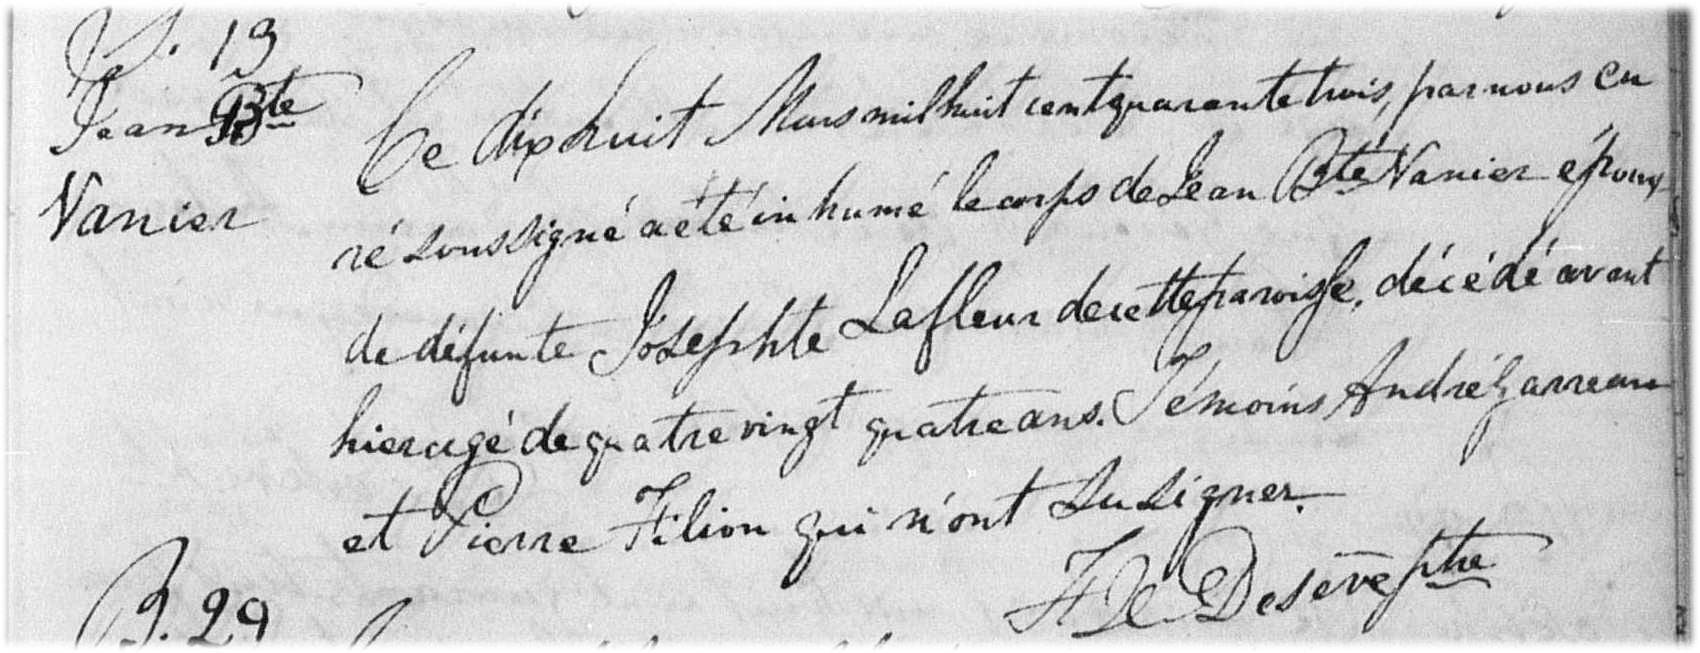 S. 13
Jean Bte
Vanier
Ce dix huit Mars mil huit cent quarante trois, par nous cu
ré soussigné a été inhumé le corps de Jean Bte Vanier époux
de défunte Josephte Lafleur de cette paroisse, décédé avant
hier agé de quatre vingt quatre ans. Temoins André Garreau
et Pierre Filion qui n'ont su signer.
Desève ptre
B. 29